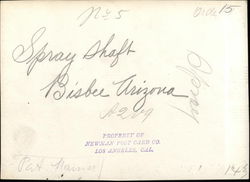 No 5
15
Spray Shaft
Bisbee Arizona
A229
PROPERTY OF
NEWMAN POST CARD CO.
LOS ANGELES, CAL.